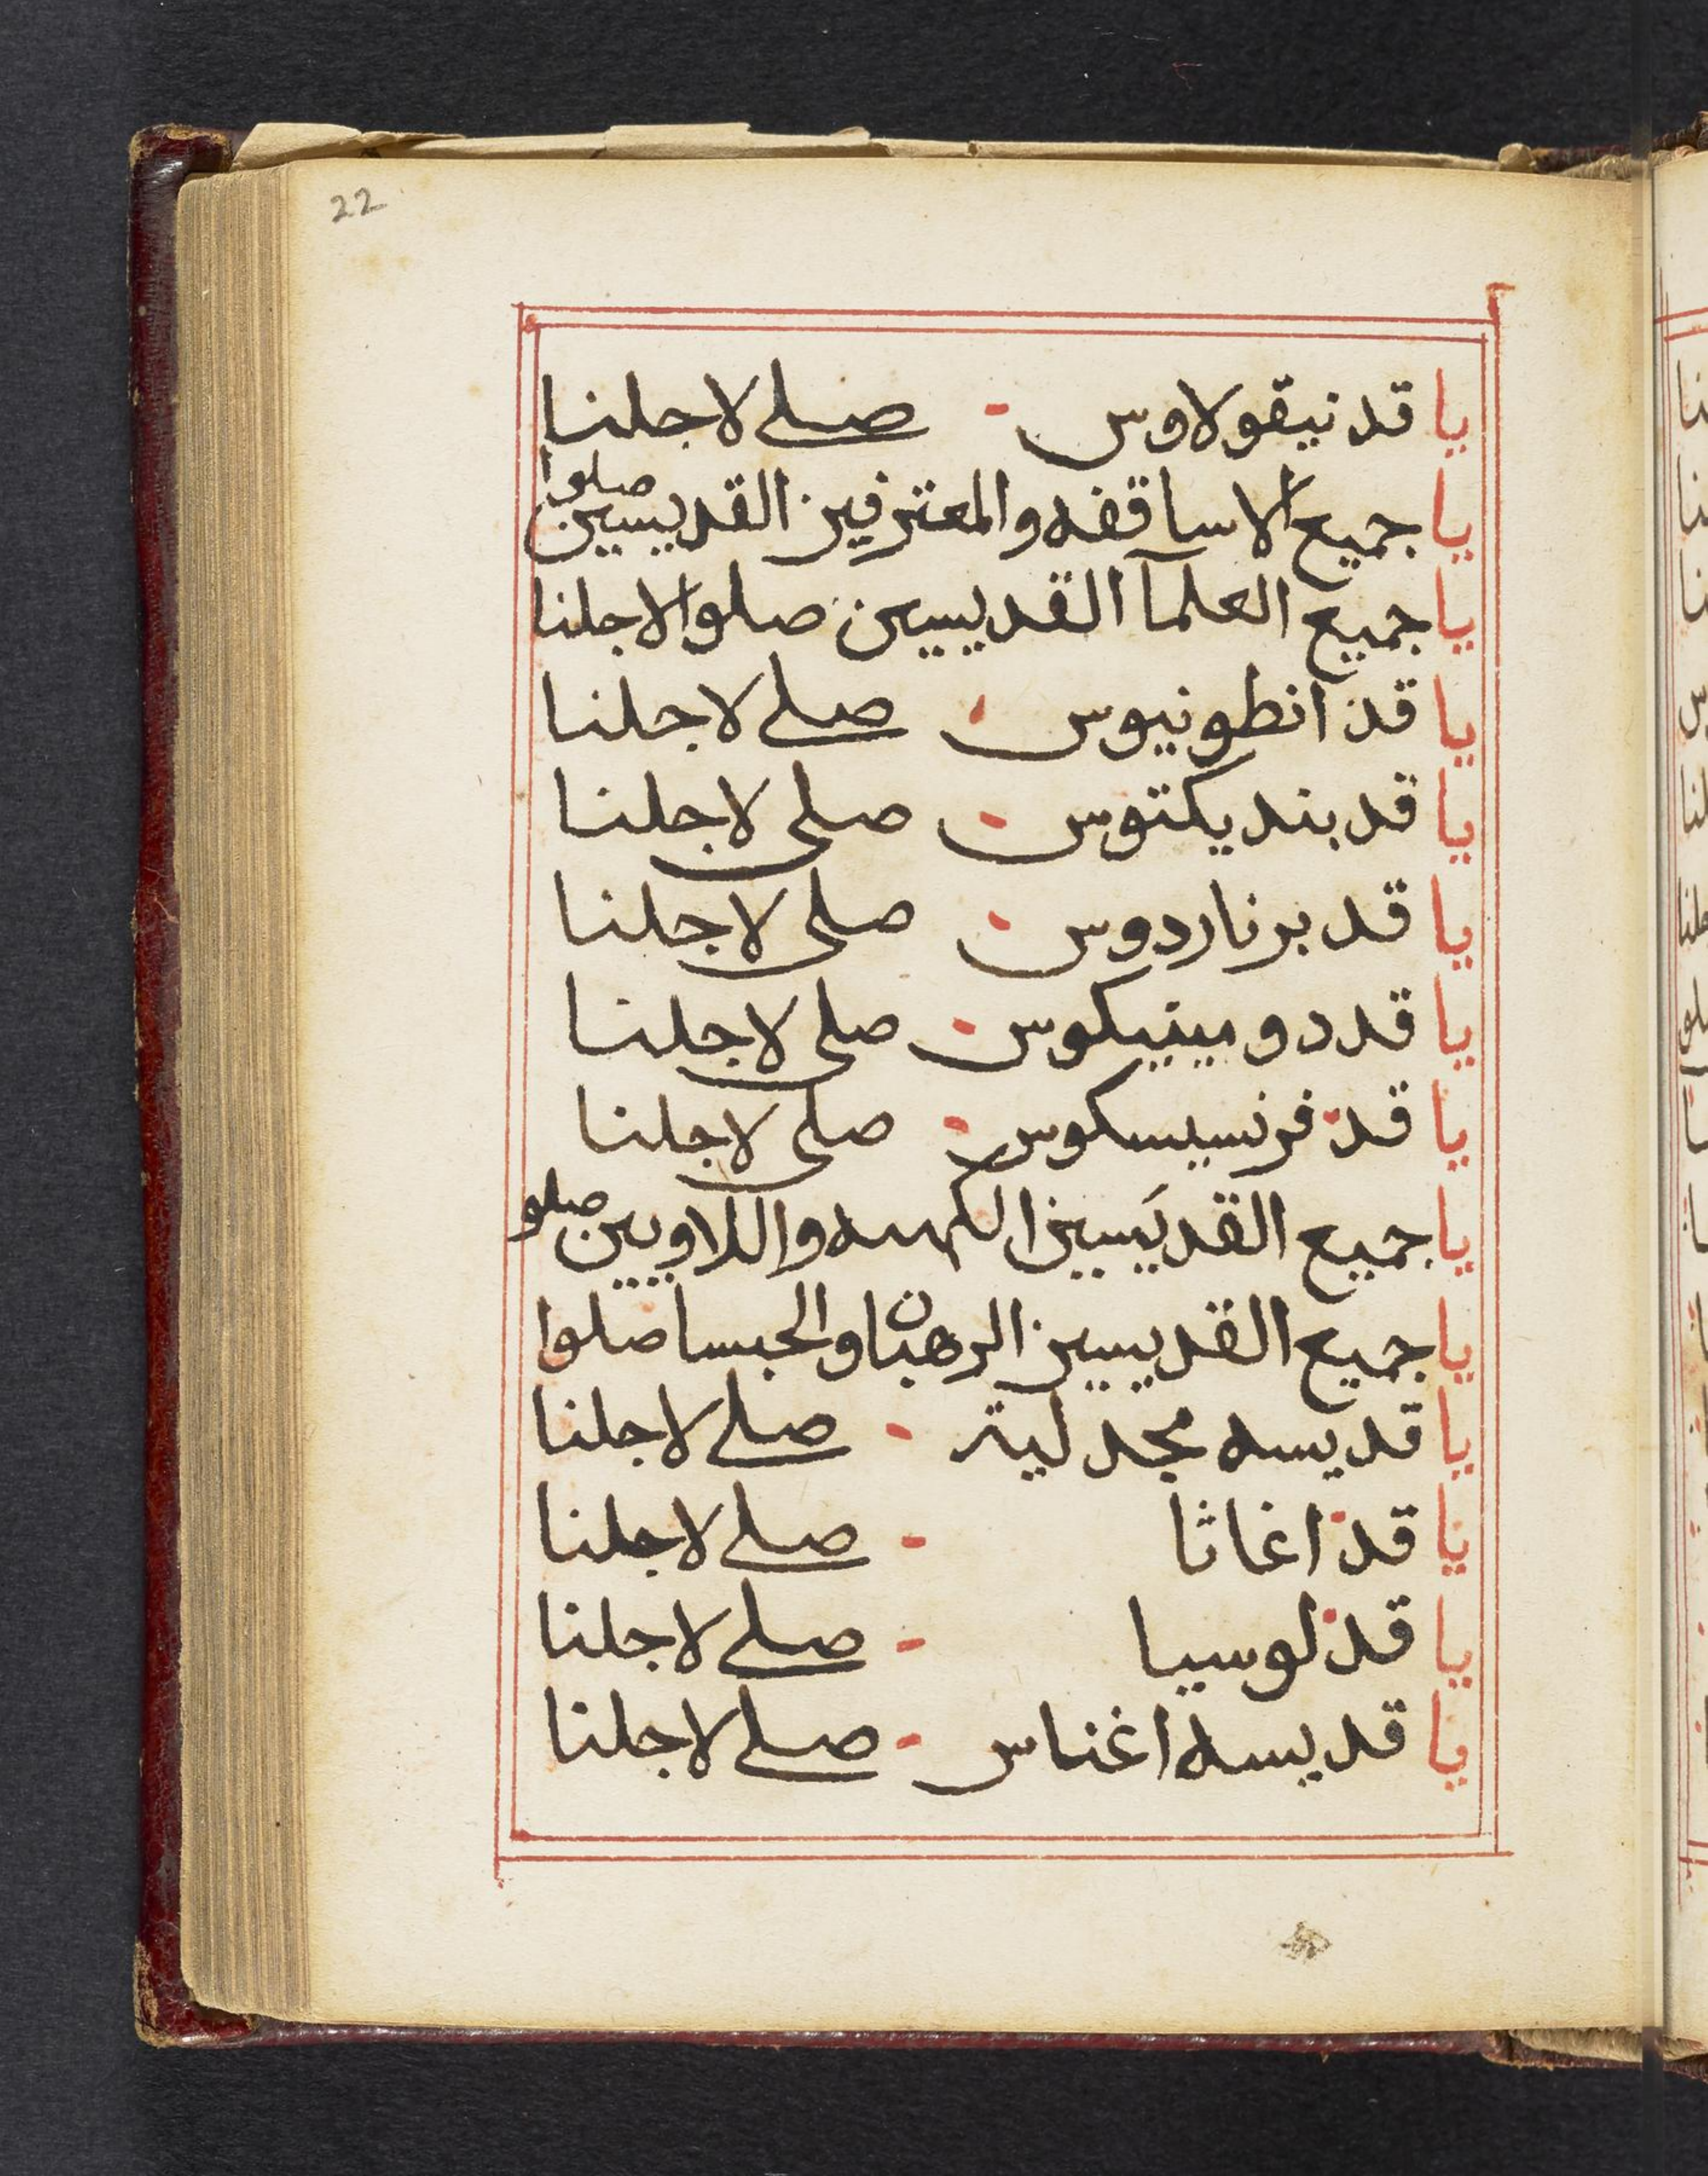 22
يا قد نيقولاوس - صلى لاجلنا
يا جميع الاساقفه والمعترفين القديسين صلوا
يا جميع العلمآ القديسين صلوا لاجلنا
يا قد انطونيوس - صلى لاجلنا
يا قد بنديكتوس - صلى لاجلنا
يا قد برناردوس - صلى لاجلنا
يا قد دومينيكوس - صلى لاجلنا
يا قد فرنسيسكوس - صلى لاجلنا
يا جميع القديَسين الكهنه واللاويين صلو
يا جميع القديسين الرهبان والحبسا صلوا
يا قديسه مجدلية - صلى لاجلنا
يا قد اغاثا - صلى لاجلنا
يا قد لوسيا - صلى لاجلنا
يا قديسه اغناس - صلى لاجلنا